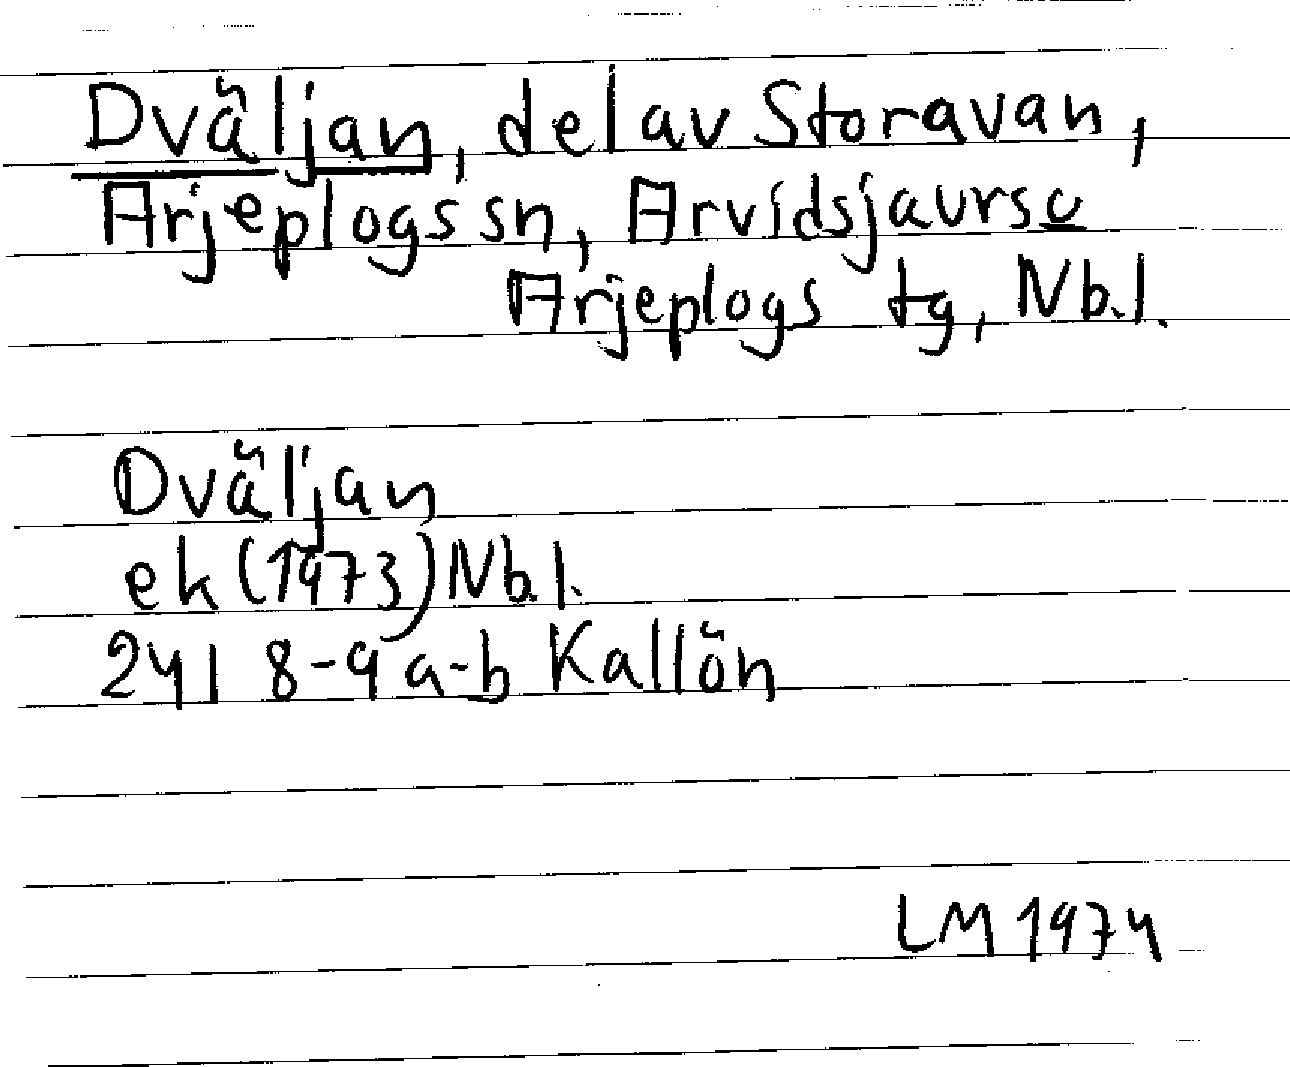 Dväljan, del av Storavan,
Arjeplogs sn, Arvidsjaurs o
Arjeplogs tg, Nb.l.
Dväljan
ek (1973) Nb.l.
24I 8-9 a-b Kallön
LM 1974